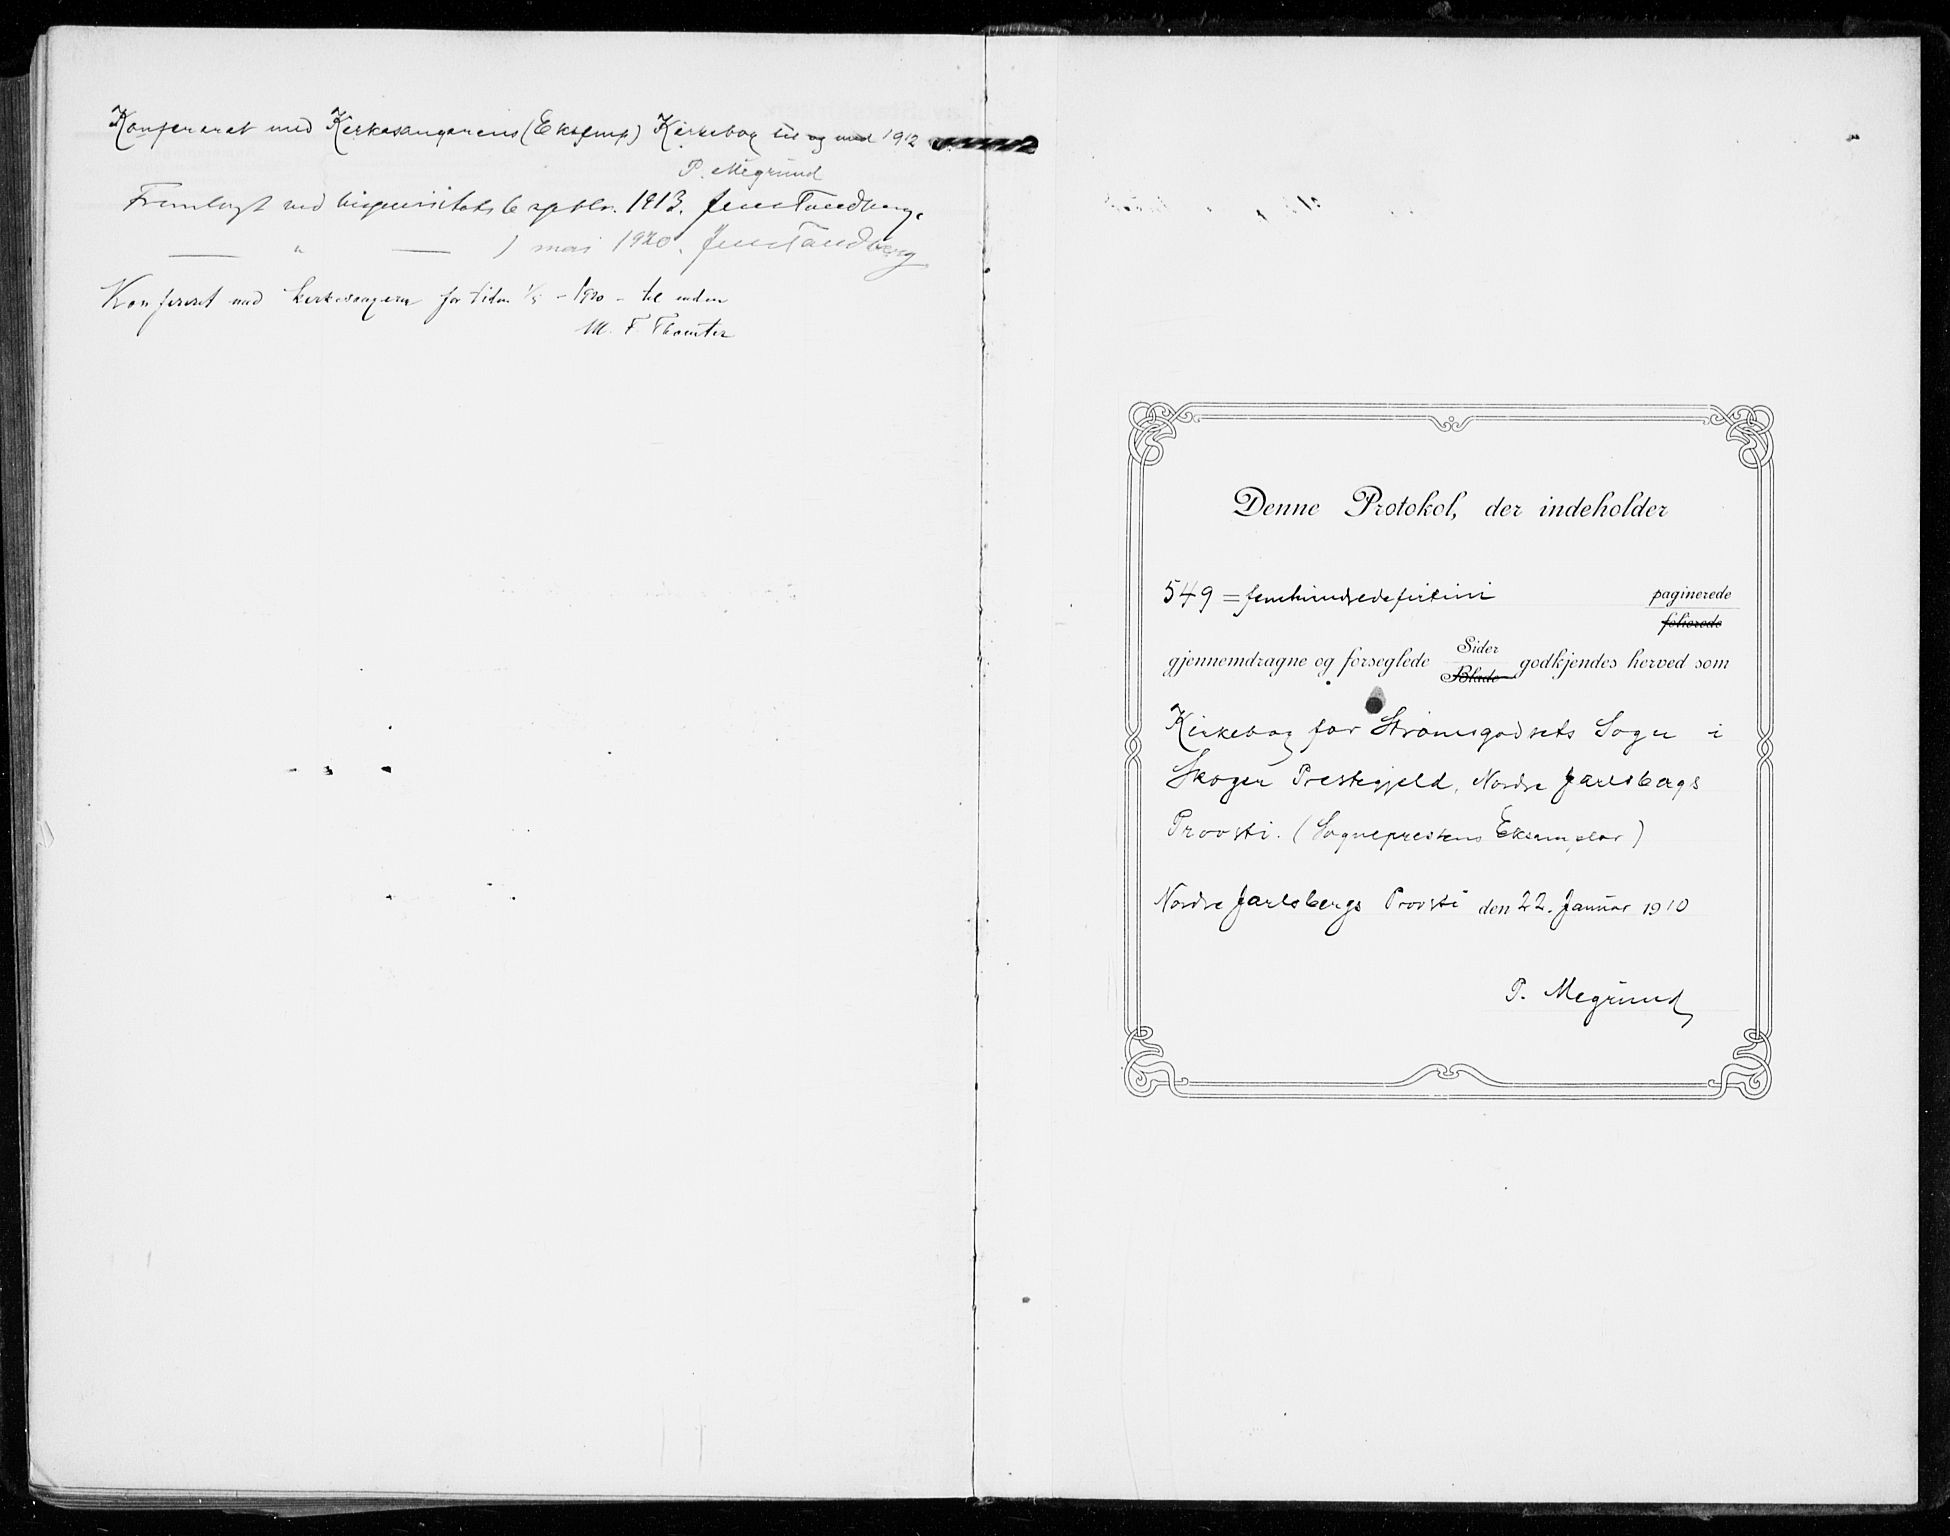 Konfereret med Kirkesangerens (Eksemp) Kirkebog til og med 1912
P. Megrund
Fremlagt ved bispevisitats 6 septbr. 1913. Jens Tandberg.
— " — mai 1920. Jens Tandberg
Konferert med kirkesangeren for tiden 1/5 - 1920 - til enden
M. F.
Denne Protokol, der indeholder
549 = femhundredefirtini paginerede
foliorede
Sider
gjennemdragne og forseglede Blade godkjendes herved som
Kirkebog for Strømsgodsets Sogn i
Skoger Prestegjeld, Nordre Jarlsbergs
Provsti. (Sogneprestens Eksemplar)
Nordre Jarlsbergs Provsti den 22. Januar 1910
P. Megrund